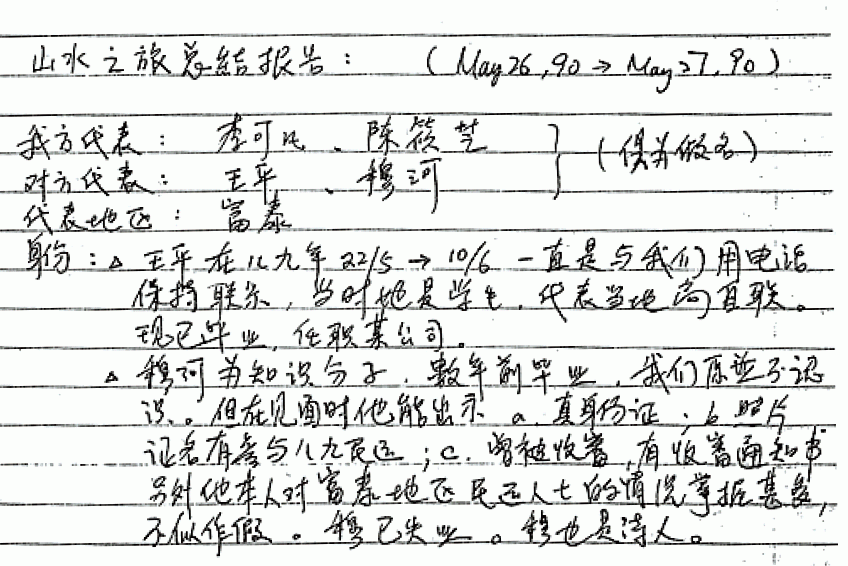 山水之旅总结报告： (May 26, 90 → May 27, 90)
我方代表： 李可凡、陈筱芝 } (俱为假名)
对方代表： 王平、穆河
代表地区： 富泰
身份：△ 王平在八九年22/5 → 10/6 一直是与我们用电话
保持联系，当时她是学生，代表当地高自联。
现已毕业，任职某公司。
△ 穆河为知识分子，数年前毕业，我们原並不認
识。但在见面时他能出示 a. 真身份证；b. 照片
证名有参与八九民运；c. 曾被收審，有收審通知书
另外他本人对富泰地区民运人士的情况掌握甚多，
不似作假。穆已失业。穆也是诗人。